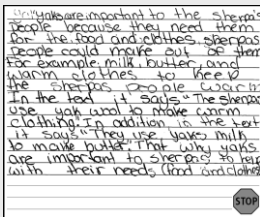 yaks are important to the sherpa's
people because they need them
for the food and clothes. sherpas
people could make out of them
For example, milk, butter, and
warm clothes to keep
the sherpas people warm
In the text it says "The sherpas
use yak wool to make warm
clothing." In addition in the text
it says "They use yaks milk
to make butter." That why yaks
are important to sherpas to help
with their needs (food and clothes
STOP